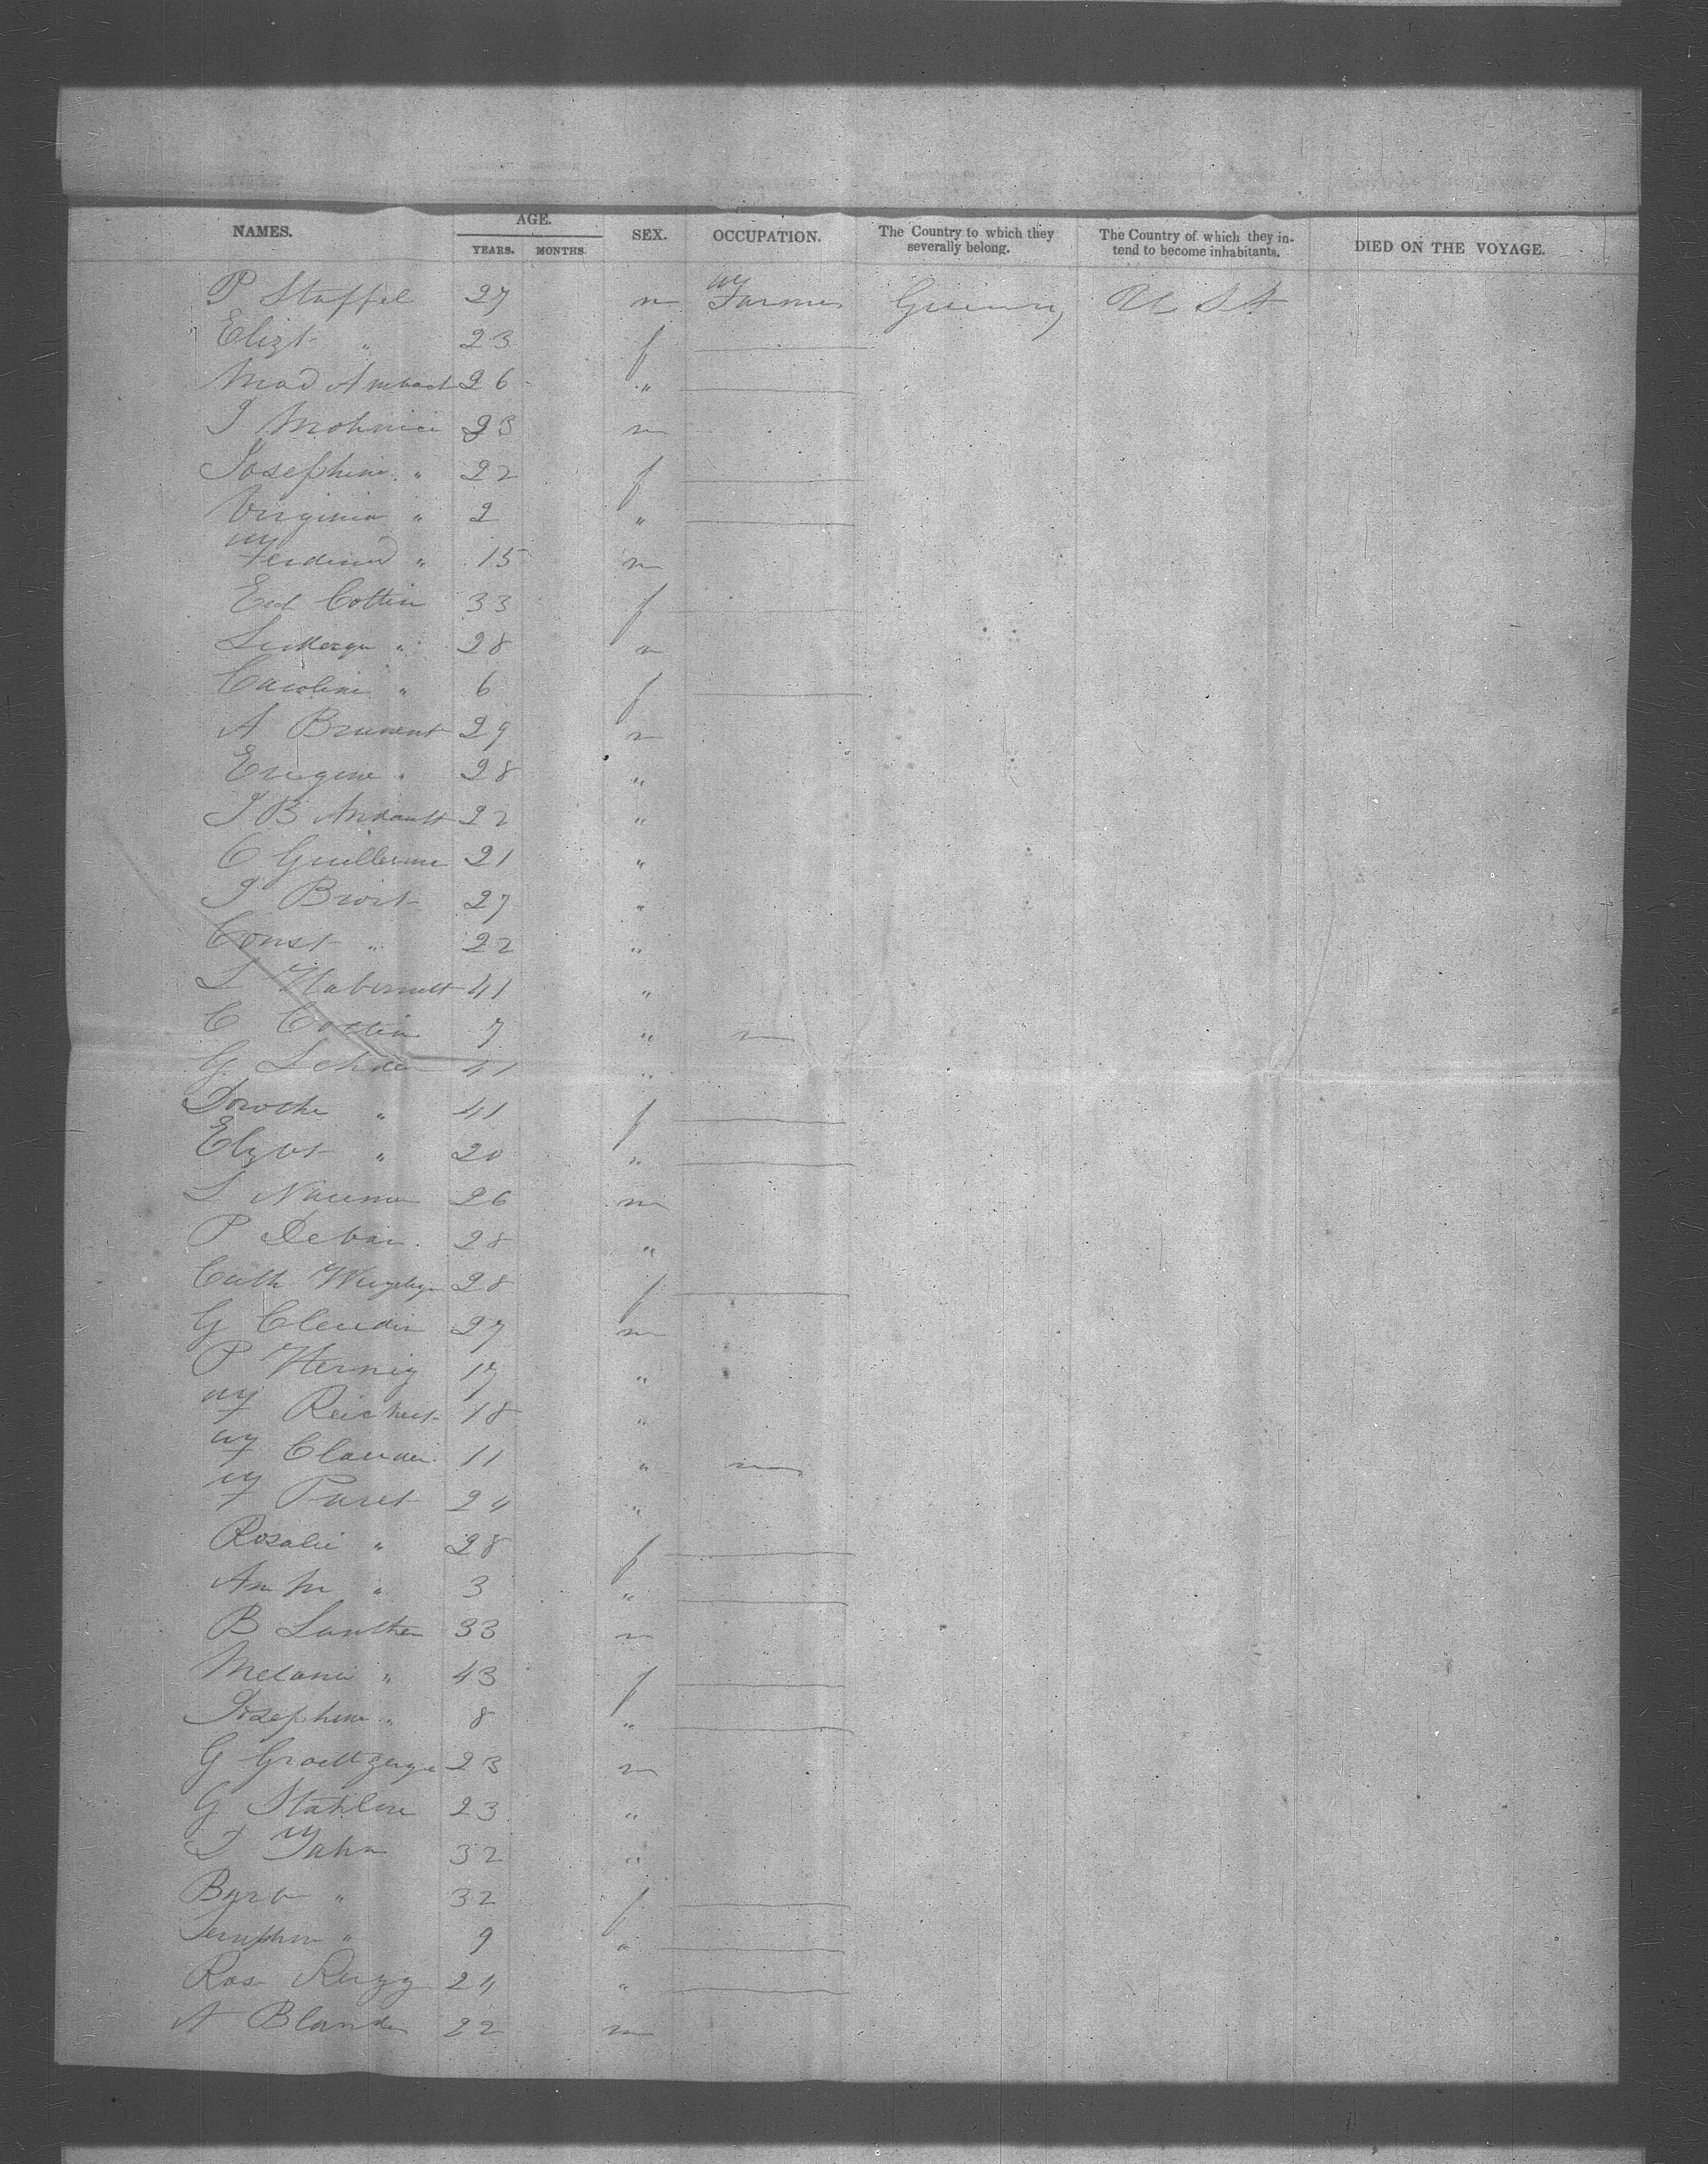 NAMES. AGE. YEARS. MONTHS. SEX. OCCUPATION. The Country to which they severally belong. The Country of which they intend to become inhabitants. DIED ON THE VOYAGE.
P Staffel 27 m Farmer Germany U S A
Elizt " 23 f
Mad Ambach 26 "
J 23 m
Josephine " 22 f
Virginia " 2 "
Ferdinand " 15 m
Ed Cottin 33 f
" 28 m
Caroline " 6 f
A Brunent 29 m
Eugene " 28 "
J B Andault 22 "
C Guillerme 21 "
J Briot 27 "
Const " 22 "
L Habernelt 41 "
C Cottin 7 "
G Schder 41 "
Dorothe " 41 f
Elizbt " 20 "
L Nauman 26 m
P Debar 28 "
Cath 28 f
G Claudin 27 m
P Hernig 17 "
F Reichert 18 "
F Claudin 11 "
F Puret 24 "
Rosalie " 28 f
An M " 3 "
B Lauther 33 m
Melanie " 43 f
Josephine " 8 "
G 23 m
G Stahline 23 "
F Jahn 32 "
Barb " 32 f
" 9 "
Ros Rugg 24 "
A Blander 22 m